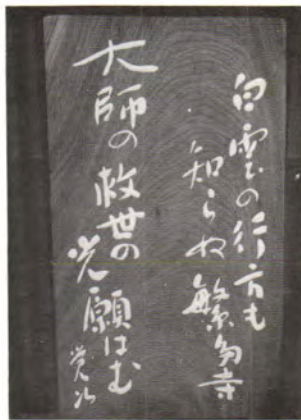 白雲の行方も
知らぬ繁多寺
大師の救世の
光願はむ